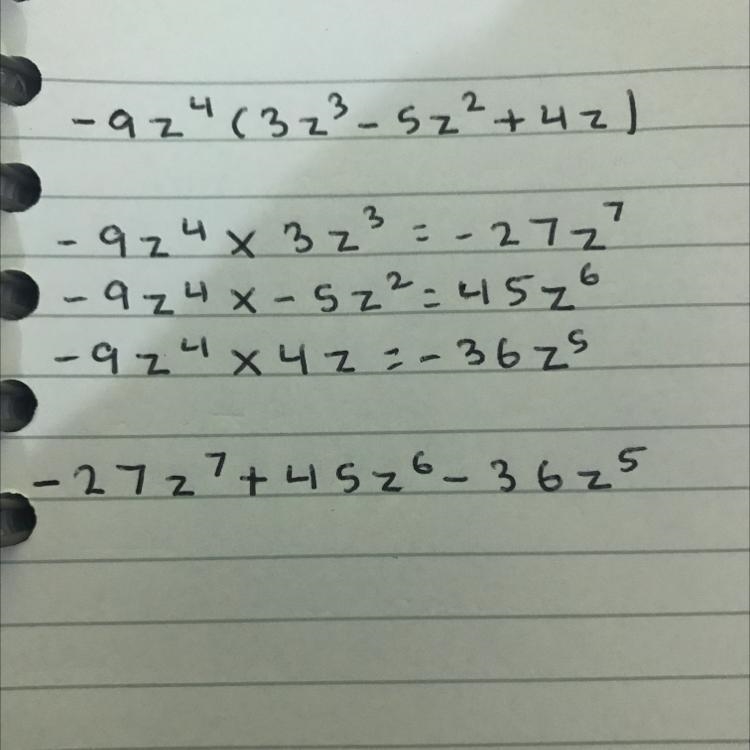 -9z⁴(3z³-5z²+4z)
-9z⁴×3z³=-27z⁷
-9z⁴×-5z²=45z⁶
-9z⁴×4z=-36z⁵
-27z⁷+45z⁶-36z⁵